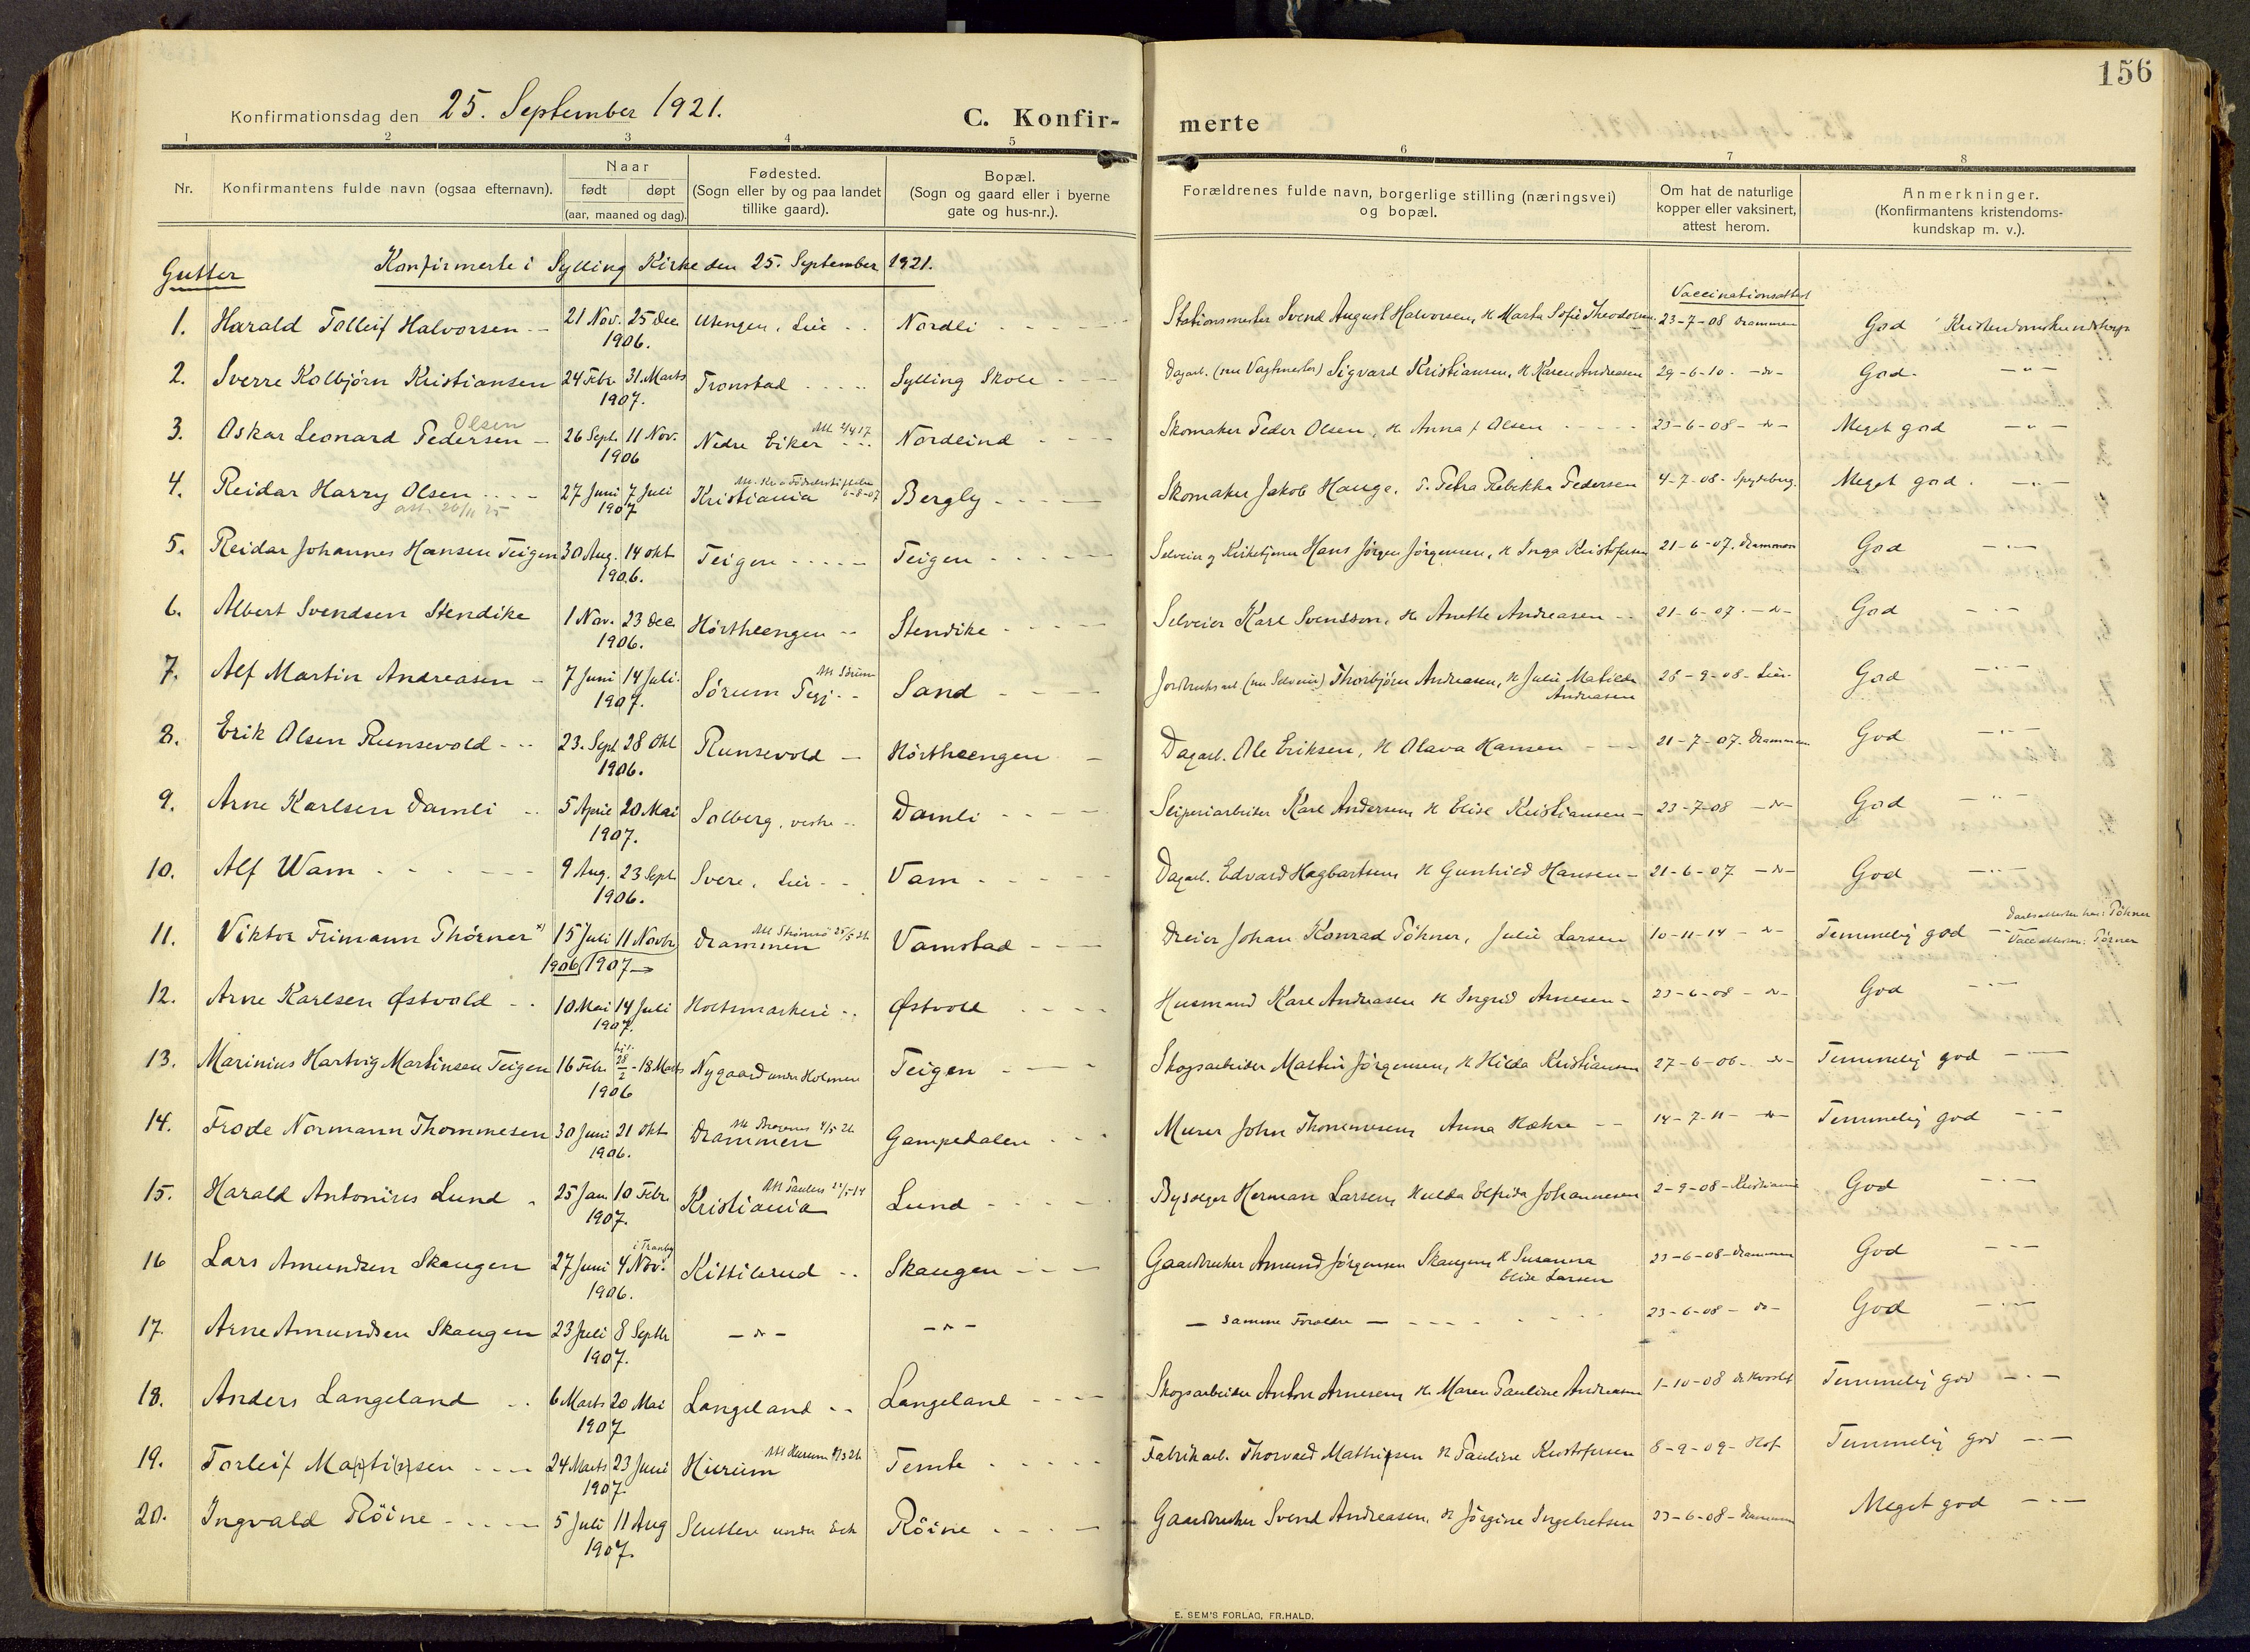 156
Konfirmationsdag den 25. September 1921.
C. Konfir- merte
1 2 3 4 5 6 7 8
Nr.
Konfirmantens fulde navn (ogsaa efternavn).
Naar
født døpt
(aar, maaned og dag).
Fødested.
(Sogn eller by og paa landet
tillike gaard).
Bopæl.
(Sogn og gaard eller i byerne
gate og hus-nr.).
Forældrenes fulde navn, borgerlige stilling (næringsvei)
og bopæl.
Om hat de naturlige
kopper eller vaksinert,
attest herom.
Anmerkninger.
(Konfirmantens kristendoms-
kundskap m. v.).
Gutter
Konfirmerte i Sylling Kirke den 25. September 1921.
Vaccinationsattest
1. Harald Tolleif Halvorsen 21 Nov. 25 Dec. Utengen, Lier Nordli Stationsmester Svend August Halvorsen, H Marta Sofie Theodorsen 23-7-08 Drammen God Kristendomskundskap
1906.
2. Sverre Kolbjørn Kristiansen 24 Febr. 31. Marts Tronstad Sylling Skole Dagarb. (nu Vagtmester) Sigvard Kristiansen, H Karen Andreasen 29-6-10. -"- God. -"-
1907.
Olsen
3. Oskar Leonard Pedersen 26 Sept. 11 Nov. Nedre Eiker Nordlind Skomaker Peder Olsen, H Anna Olsen 23-6-08 -"- Meget god -"-
1906
4. Reidar Harry Olsen 27 Juni 7 Juli Kristiania Bergly Skomaker Jakob Hauge. P. Petra Rebekka Pedersen 4-7-08 - Spydeberg. Meget god. -"-
att. 26/11 25
1907
5. Reidar Johannes Hansen Teigen 30 Aug. 14 Okt Teigen Teigen Selveier og Kirketjener Hans Jörgen Jörgensen, H Inga Kristofersen 21-6-07. Drammen God -"-
1906.
6. Albert Svendsen Stendike 1 Nov. 23 Dec. Hörtheengen Stendike Selveier Karl Svensson, H Anette Andreasen 21-6-07. -"- God -"-
1906.
Att Sörum
7. Alf Martin Andreasen 7 Juni 14 Juli Sörum Pgj. Sand Jordbruksarb (nu Selveier) Thorbjörn Andreasen, H Julie Matilda 26-9-08 - Lier God -"-
Andreasen
1907.
8. Erik Olsen Runsevold 23. Sept 28 Okt Runsevold Hörtheengen Dagarb. Ole Eriksen, H Olava Hansen 21-7-07. Drammen God -"-
1906.
9. Arne Karlsen Damli 5 April 20 Mai Solberg, vestre Damli Sliperiarbeider Karl Andersen, H Elise Kristiansen 23-7-08 -"- God -"-
1907.
10. Alf Wam 9 Aug. 23 Sept Svere, Lier Vam Dagarb. Edvard Hagbartsen, H Gunhild Hansen 21-6-07 -"- God -"-
1906.
11. Viktor Frimann Thörner 15 Juli 11 Novbr Drammen Vamstad Dreier Johan Konrad Töhner, Julie Larsen 10-11-14 -"- Temmelig god Daabsattesten har: Töhner
Att Strömsö 25/5 21
Vacc attesten: Törner
1906 1907
12. Arne Karlsen Østvold 10 Mai 14 Juli Holtsmarkeie Østvold Husmand Karl Andreasen H Ingrid Arnesen 23-6-08 -"- God -"-
1907.
13. Marinius Hartvig Martinsen Teigen 16 Febr 28/2 - 18 Marts Nygaard under Holmen Teigen Skogsarbeider Martin Jörgensen, H Hilda Kristiansen 27-6-06 -"- Temmelig god
1906
14. Frode Normann Thommesen 30 Juni 21 Okt Drammen Gampedalen Murer John Thommesen, Anna Hæhre 14-7-11 -"- Temmelig god
1906.
15. Harald Antonius Lund 25 Jan 10 Febr. Kristiania Lund Bysælger Herman Larsen, Hulda Elfrida Johannesen 2-9-08 - Kristiania God
1907.
i Tranby
16 Lars Amundsen Skaugen 27 Juni 4 Nov. Kittilsrud Skaugen Gaardbruker Amund Jörgensen Skaugen, H Susanna 23-6-08 - Drammen God
Elise Larsen
1906.
17. Arne Amundsen Skaugen 23 Juli 8 Septbr -"- -"- samme Forældre 23-6-08 - " - God
1907.
18. Anders Langeland 6 Marts 20 Mai Langeland Langeland Skogsarbeider Anton Arnesen, H. Maren Pauline Andreasen 1-10-08 Temmelig god
1907
Att Hurum
19. Torleif Martinsen 24 Marts 23 Juni Hurum Temte Fabrikarb. Thorvald Mathisen H Pauline Kristofersen 8-9-09 - Hof Temmelig god
1907.
20. Ingvald Röine 5 Juli 11 Aug Röine Gaardbruker Svend Andreasen, H Jörgine Ingebretsen 23-6-08 - Drammen Meget god
1907.
E. SEM'S FORLAG, FR.HALD.